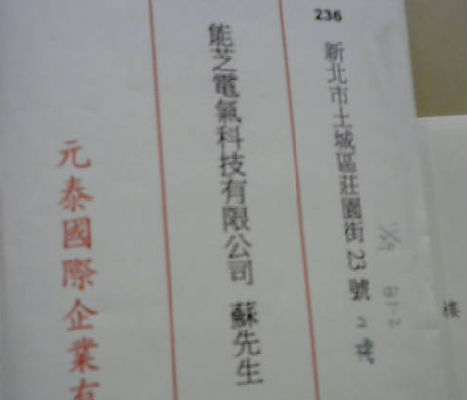 236
新北市土城區莊園街23號
能芝電氣科技有限公司 蘇先生
元泰國際企業有
樓